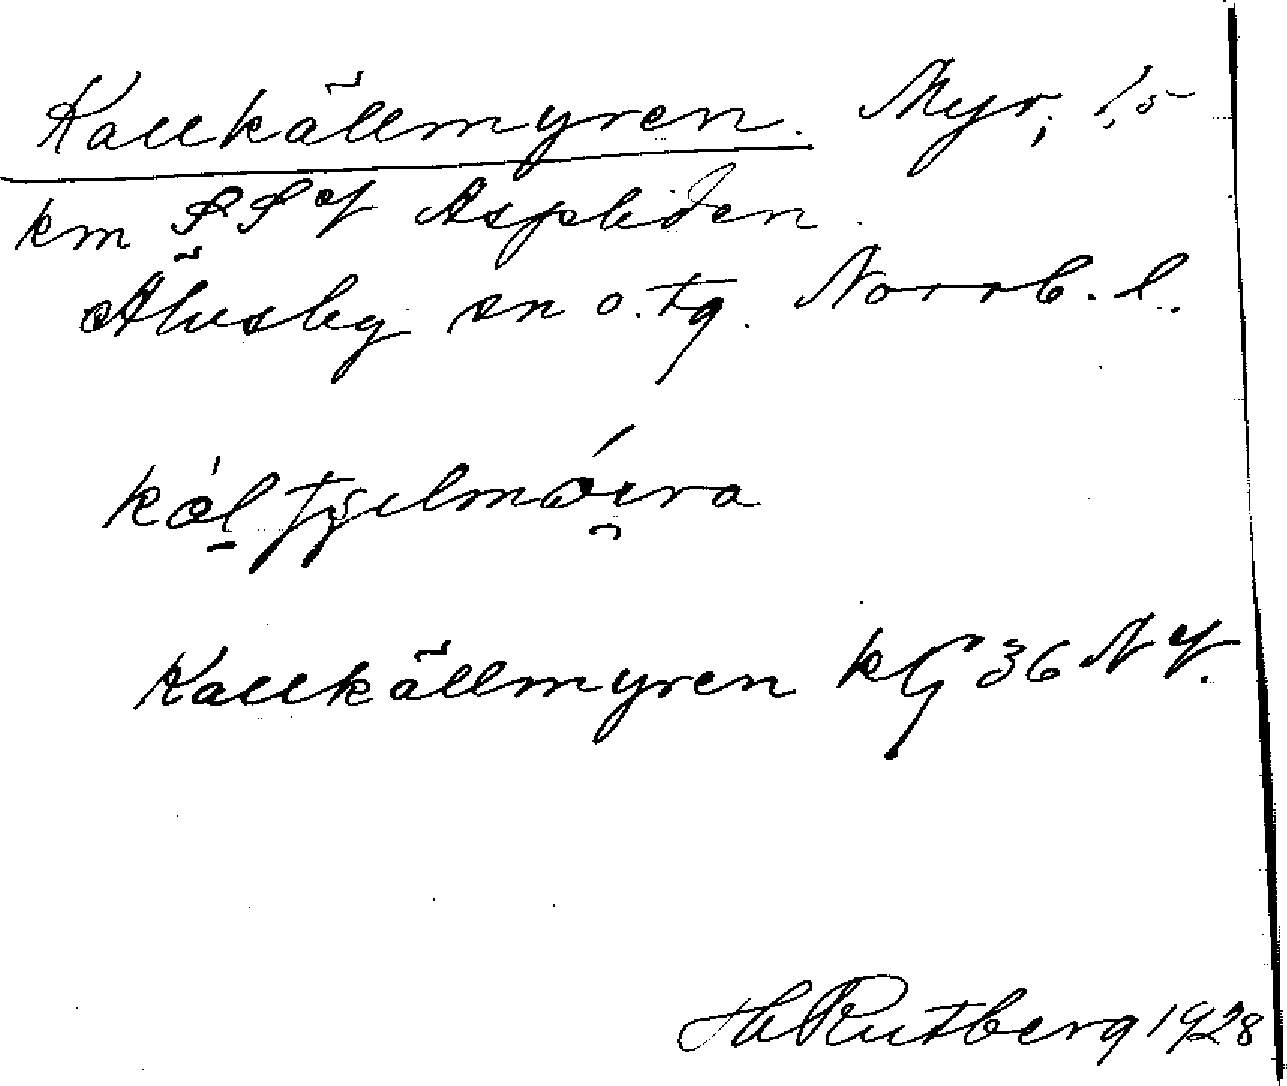 Kallkällmyren. Myr, 1,5
km SSV Aspliden.
Älvsby sn o. tg. Norrb. l.
Kallkällmyren kG 36 NV.
Hl Rutberg 1928